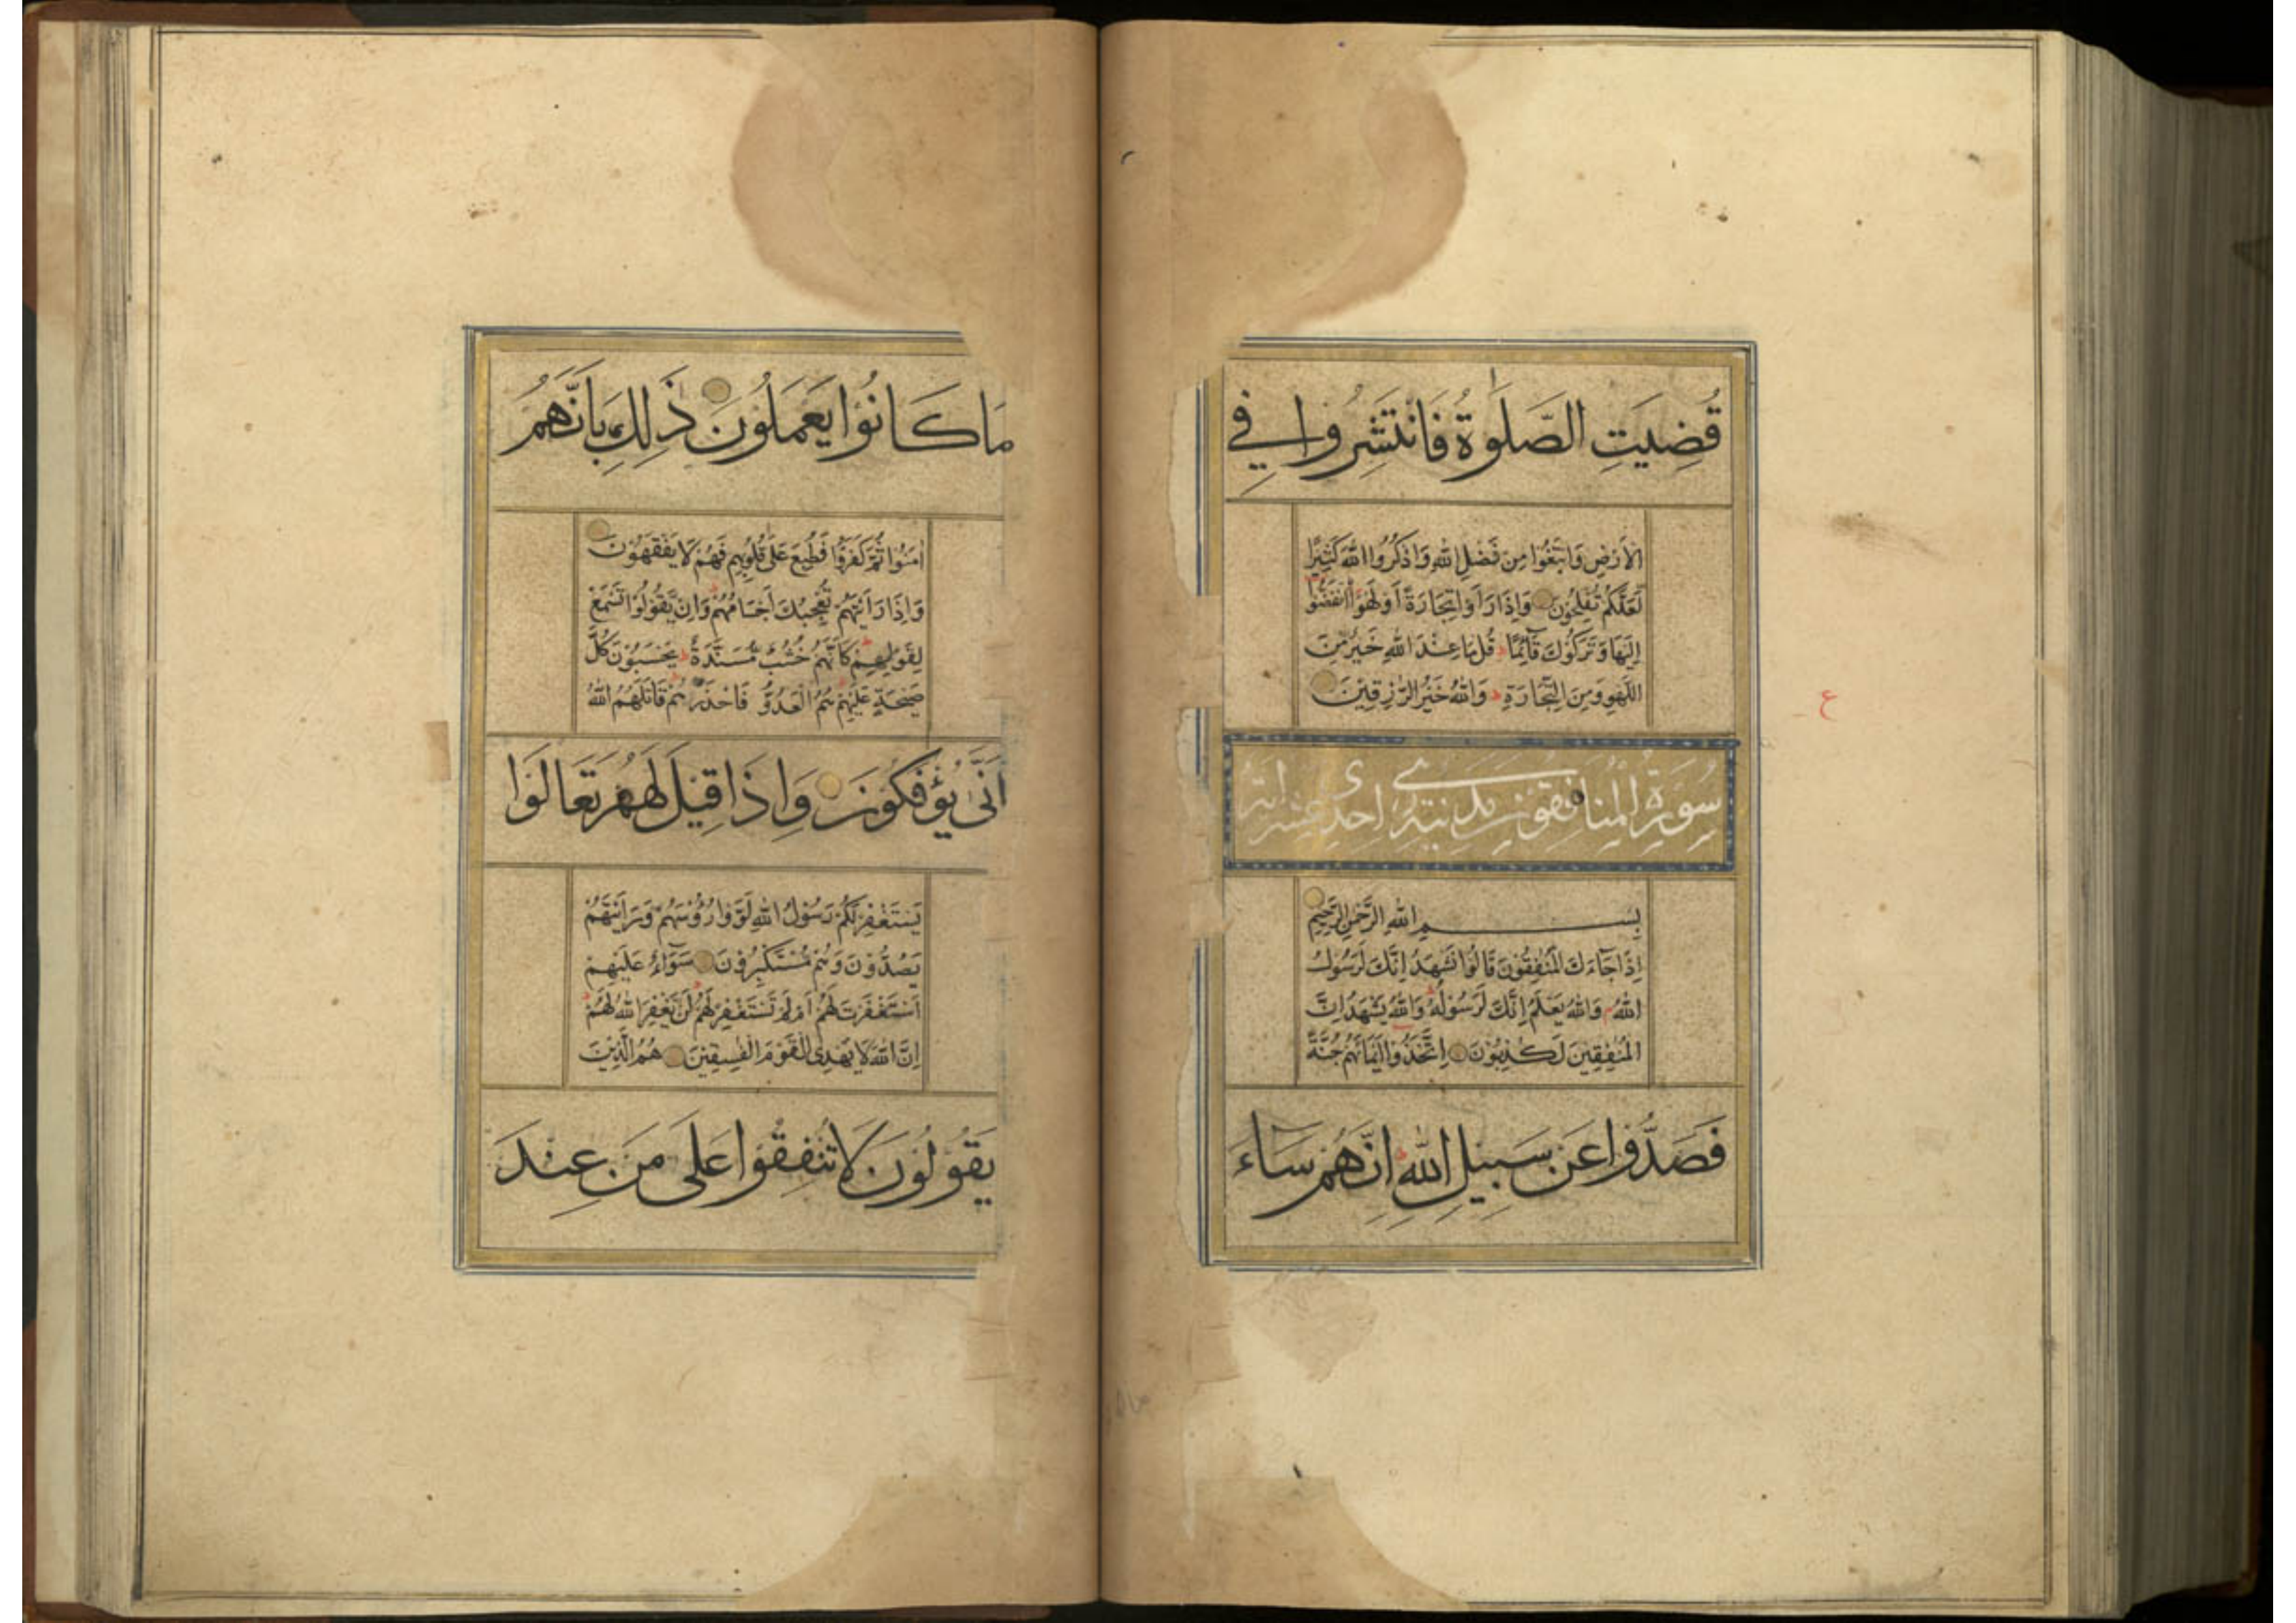 قُضِيَتِ الصَّلَوٰةُ فَانْتَشِرُوا فِي
الْأَرْضِ وَابْتَغُوا مِنْ فَضْلِ اللهِ وَاذْكُرُوا اللهَ كَثِيرًا
لَعَلَّكُمْ تُفْلِحُونَ وَإِذَا رَأَوْا تِجَارَةً أَوْ لَهْوًا انْفَضُّوا
إِلَيْهَا وَتَرَكُوكَ قَائِمًا قُلْ مَا عِنْدَ اللهِ خَيْرٌ مِنَ
اللَّهْوِ وَمِنَ التِّجَارَةِ وَاللهُ خَيْرُ الرّٰزِقِينَ
ع
سورة المنافقون مدنية احدى عشر اية
بِسْمِ اللهِ الرَّحْمٰنِ الرَّحِيمِ
إِذَا جَاءَكَ الْمُنٰفِقُونَ قَالُوا نَشْهَدُ إِنَّكَ لَرَسُولُ
اللهِ وَاللهُ يَعْلَمُ إِنَّكَ لَرَسُولُهُ وَاللهُ يَشْهَدُ إِنَّ
الْمُنٰفِقِينَ لَكٰذِبُونَ اِتَّخَذُوا أَيْمَانَهُمْ جُنَّةً
فَصَدُّوا عَنْ سَبِيلِ اللهِ إِنَّهُمْ سَاءَ
مَا كَانُوا يَعْمَلُونَ ذٰلِكَ بِأَنَّهُمْ
اٰمَنُوا ثُمَّ كَفَرُوا فَطُبِعَ عَلَىٰ قُلُوبِهِمْ فَهُمْ لَا يَفْقَهُونَ
وَإِذَا رَأَيْتَهُمْ تُعْجِبُكَ أَجْسَامُهُمْ وَإِنْ يَقُولُوا تَسْمَعْ
لِقَوْلِهِمْ كَأَنَّهُمْ خُشُبٌ مُسَنَّدَةٌ يَحْسَبُونَ كُلَّ
صَيْحَةٍ عَلَيْهِمْ هُمُ الْعَدُوُّ فَاحْذَرْهُمْ قَاتَلَهُمُ اللهُ
أَنَّىٰ يُؤْفَكُونَ وَإِذَا قِيلَ لَهُمْ تَعَالَوْا
يَسْتَغْفِرْ لَكُمْ رَسُولُ اللهِ لَوَّوْا رُؤُسَهُمْ وَرَأَيْتَهُمْ
يَصُدُّونَ وَهُمْ مُسْتَكْبِرُونَ سَوَاءٌ عَلَيْهِمْ
أَسْتَغْفَرْتَ لَهُمْ أَمْ لَمْ تَسْتَغْفِرْ لَهُمْ لَنْ يَغْفِرَ اللهُ لَهُمْ
إِنَّ اللهَ لَا يَهْدِي الْقَوْمَ الْفٰسِقِينَ هُمُ الَّذِينَ
يَقُولُونَ لَا تُنْفِقُوا عَلَىٰ مَنْ عِنْدَ